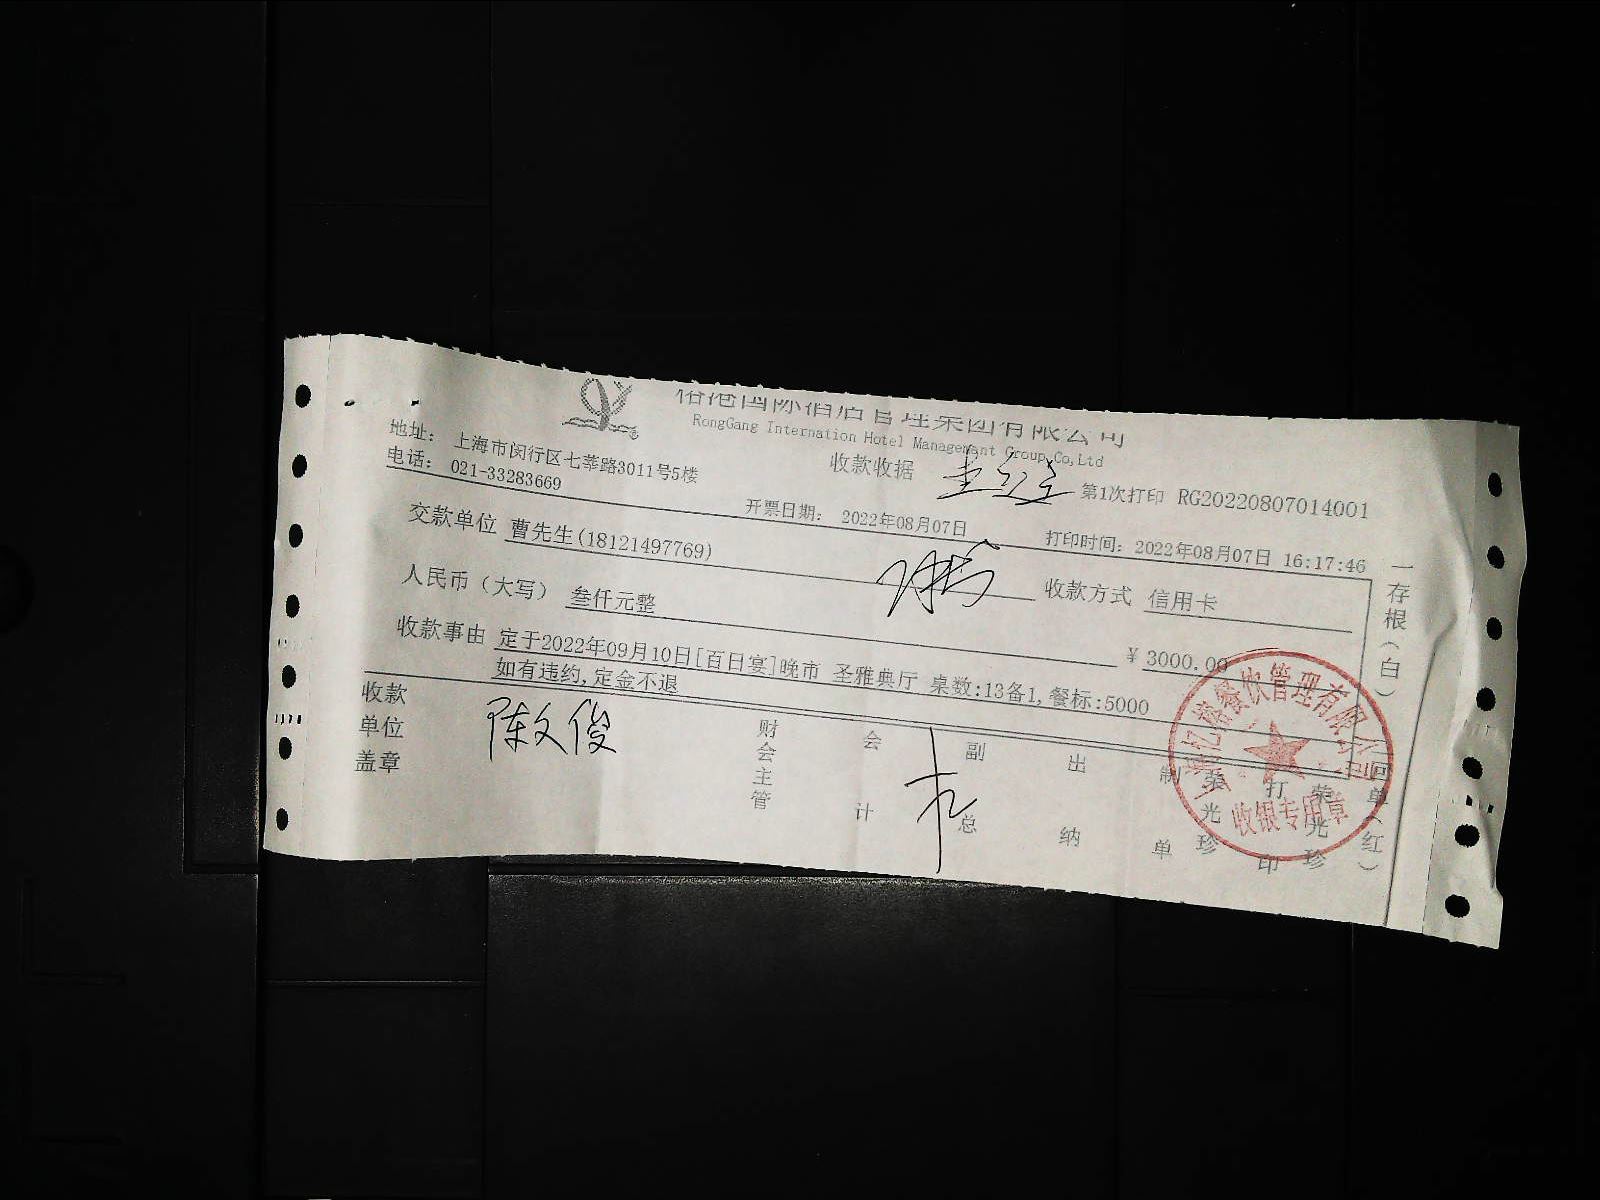 榕港国际酒店管理集团有限公司
RongGang Internation Hotel Managemant Group Co,Ltd
地址： 上海市闵行区七莘路3011号5楼
电话： 021-33283669
收款收据
第1次打印 RG20220807014001
开票日期： 2022年08月07日
打印时间：2022年08月07日 16:17:46
交款单位 曹先生(18121497769)
收款方式 信用卡
人民币（大写） 叁仟元整
¥ 3000.00
收款事由 定于2022年09月10日[百日宴]晚市 圣雅典厅 桌数:13备1,餐标:5000
如有违约,定金不退
收款单位盖章
陈文俊
财会主管
会计
副总
出纳
制单
荣光珍
打印
荣光珍
一存根（白）
回单（红）
餐饮管理有限公司
收银专用章